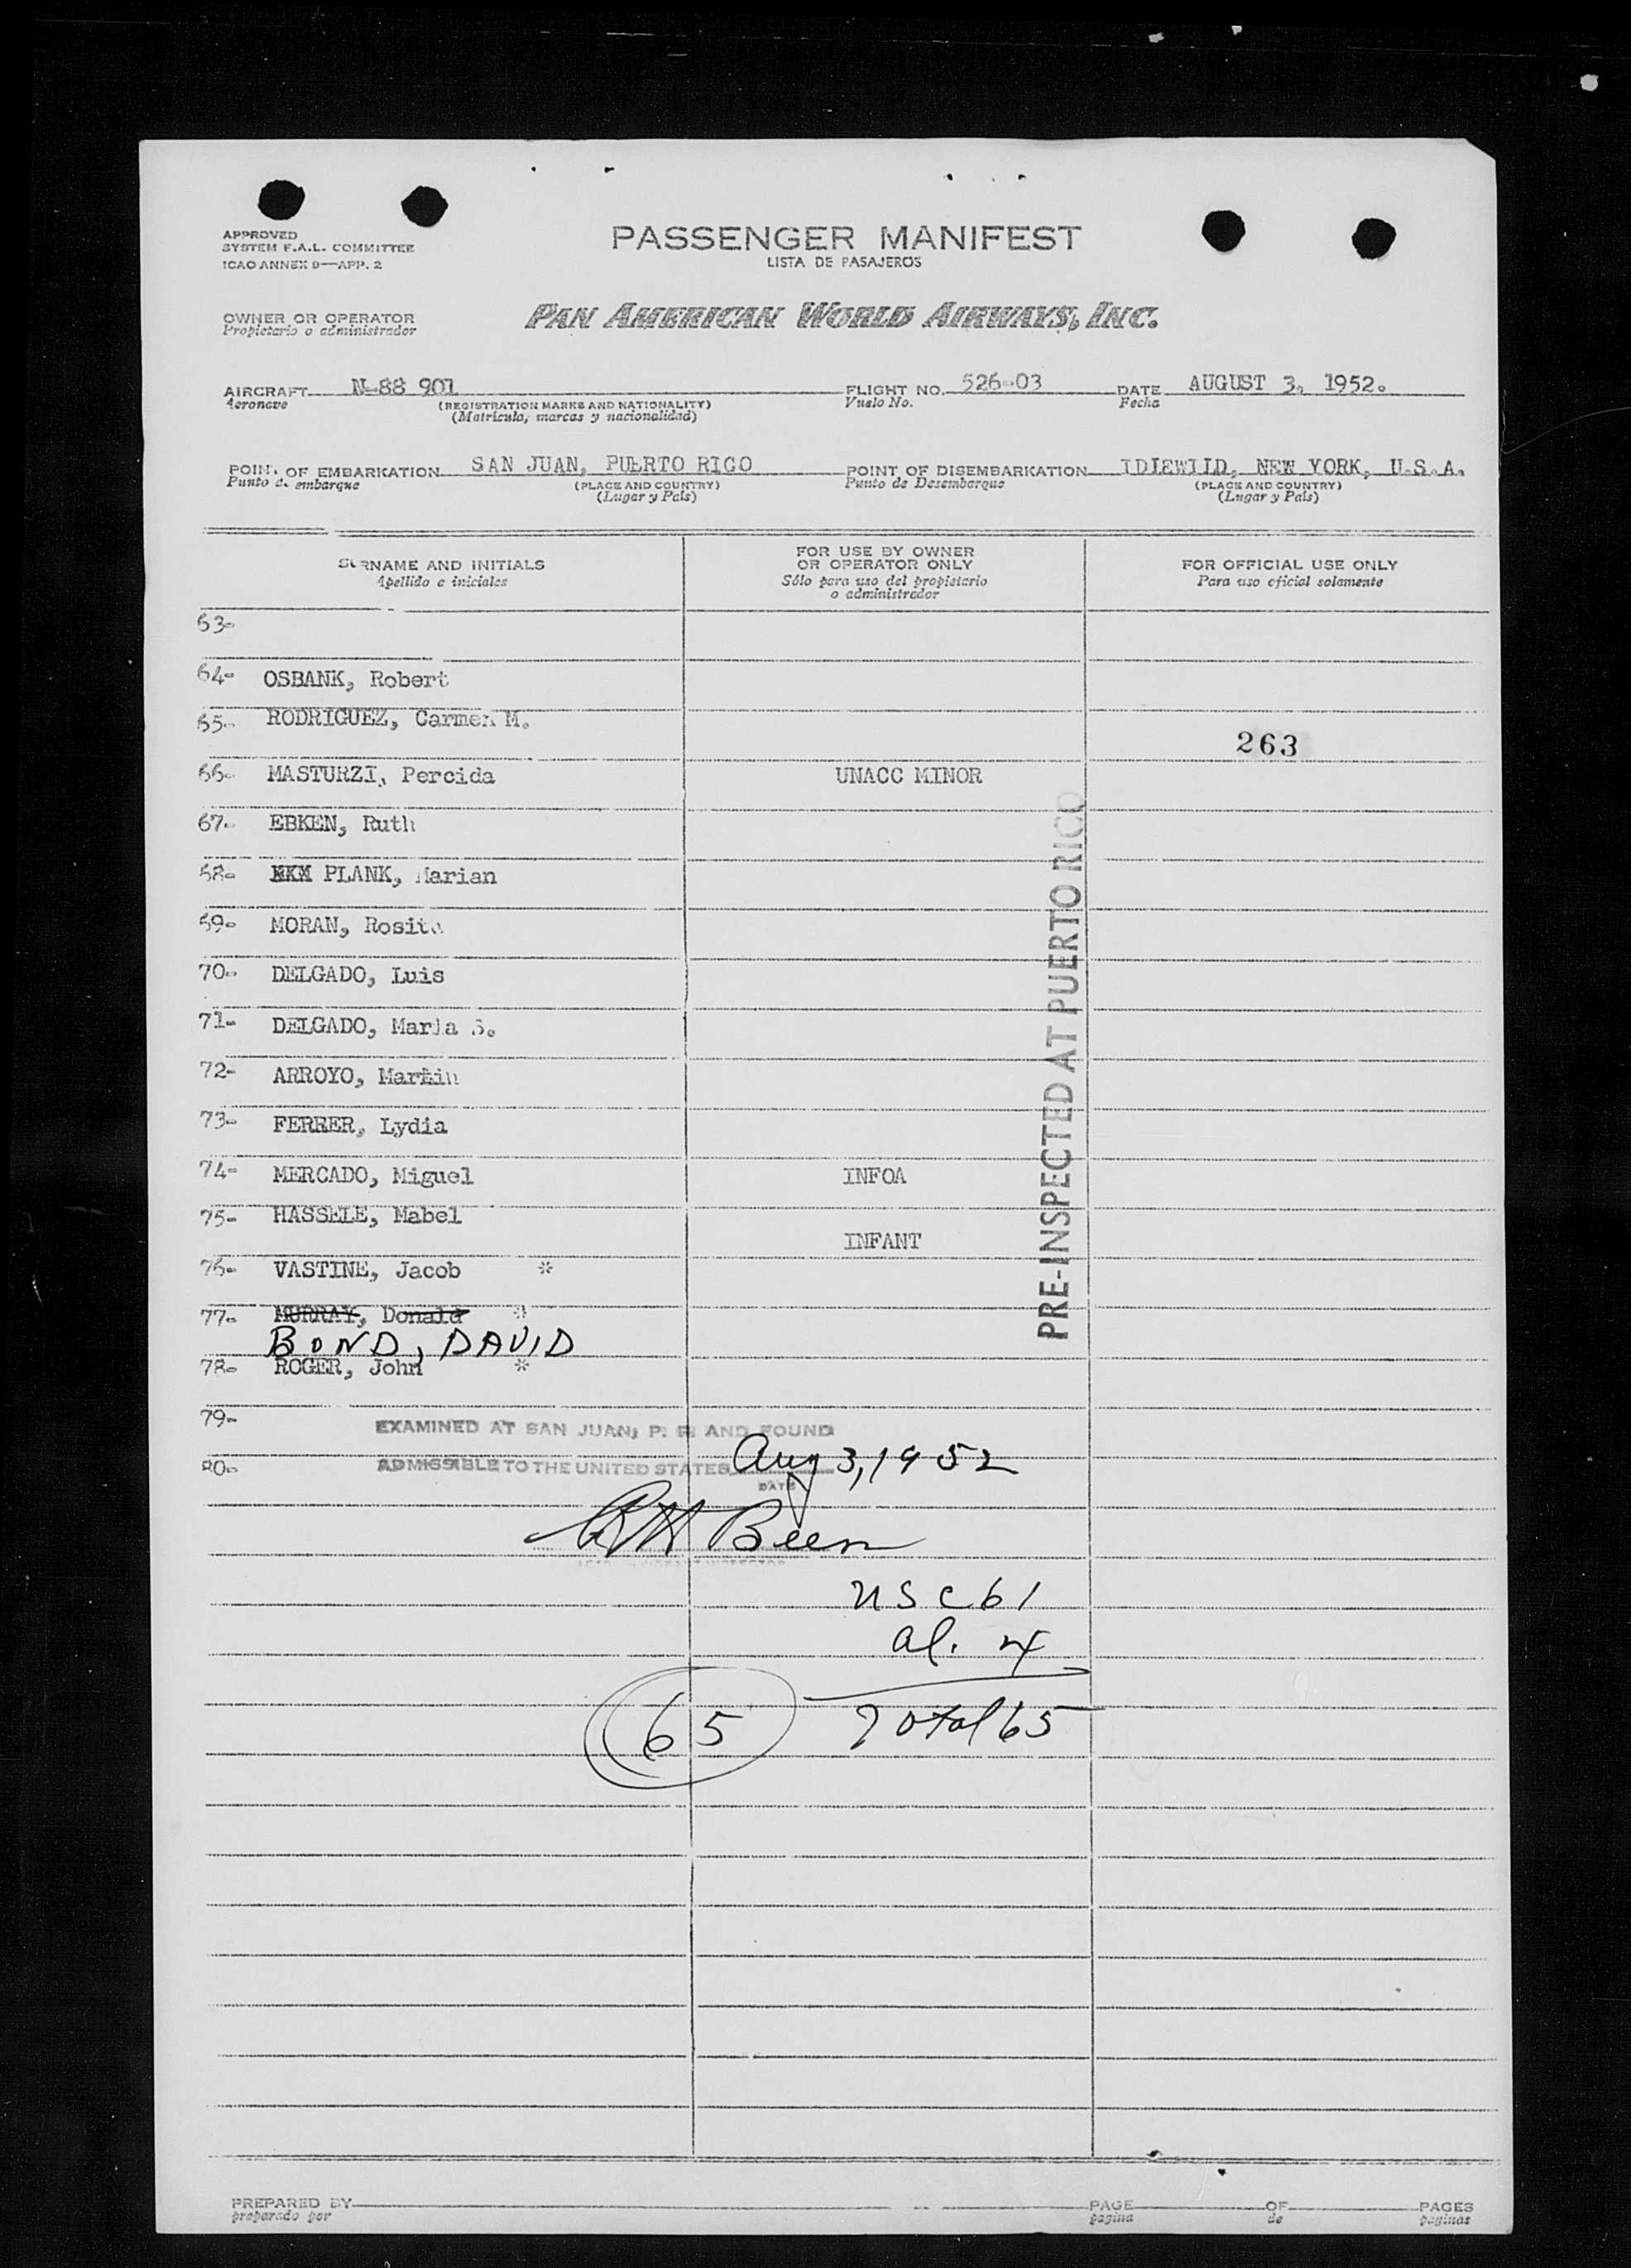 APPROVED
SYSTEM F.A.L. COMMITTEE
ICAO ANNEX 9—APP. 2
PASSENGER MANIFEST
LISTA DE PASAJEROS
OWNER OR OPERATOR
Propietario o administrador
PAN AMERICAN WORLD AIRWAYS, INC.
AIRCRAFT N-88 901 FLIGHT NO. 526-03 DATE AUGUST 3, 1952.
Aeronave (REGISTRATION MARKS AND NATIONALITY) Vuelo No. Fecha
(Matrícula, marcas y nacionalidad)
POINT OF EMBARKATION SAN JUAN, PUERTO RICO POINT OF DISEMBARKATION IDLEWILD, NEW YORK, U.S.A.
Punto de embarque (PLACE AND COUNTRY) Punto de Desembarque (PLACE AND COUNTRY)
(Lugar y País) (Lugar y País)
SURNAME AND INITIALS
Apellido e iniciales
FOR USE BY OWNER
OR OPERATOR ONLY
Sólo para uso del propietario
o administrador
FOR OFFICIAL USE ONLY
Para uso oficial solamente
63-
64- OSBANK, Robert
65- RODRIGUEZ, Carmen M.
263
66- MASTURZI, Percida UNACC MINOR
67- EBKEN, Ruth
68- PLANK, Marian
69- MORAN, Rosita
70- DELGADO, Luis
71- DELGADO, Maria S.
72- ARROYO, Martin
73- FERRER, Lydia
74- MERCADO, Miguel INFOA
75- HASSELE, Mabel
INFANT
76- VASTINE, Jacob *
77- MURRAY, Donald *
BOND, DAVID
78- ROGER, John *
79-
80-
PRE-INSPECTED AT PUERTO RICO
EXAMINED AT SAN JUAN, P. R. AND FOUND
ADMISSIBLE TO THE UNITED STATES Aug 3, 1952
DATE
Been
USC 61
al. 4
65 Total 65
PREPARED BY PAGE OF PAGES
preparado por página de páginas